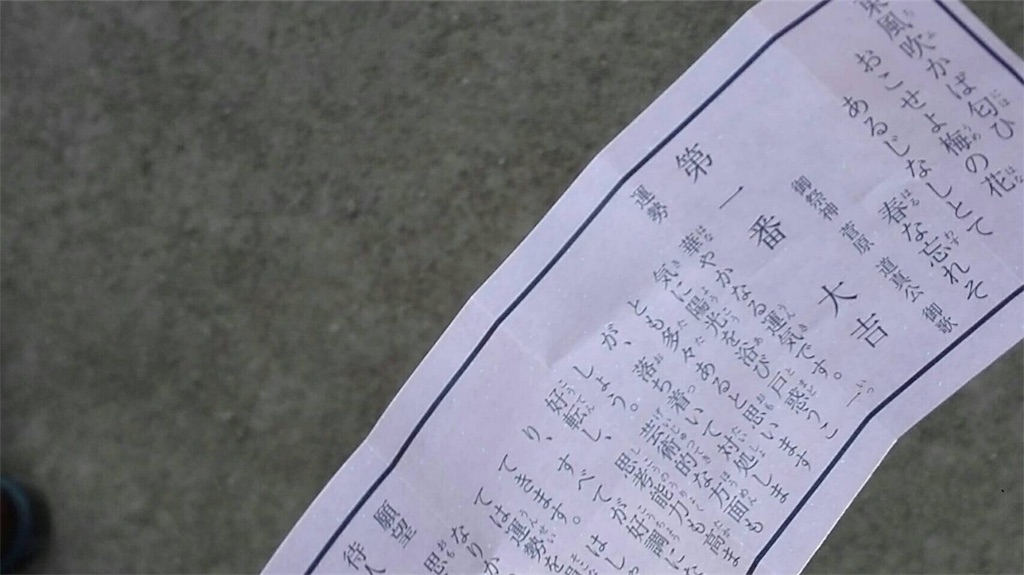 東風吹かば匂ひ
おこせよ梅の花
あるじなしとて
春な忘れそ
御祭神 菅原道真公 御歌
第一番 大吉
運勢
華やかなる運気です。一
気に陽光を浴び戸惑うこ
とも多々あると思います
が、落ち着いて対処しま
しょう。芸術的な方面も
好転し、思考能力も高ま
り、すべてが好調に
てきます。
ては運勢を
なり
思
願望
待人